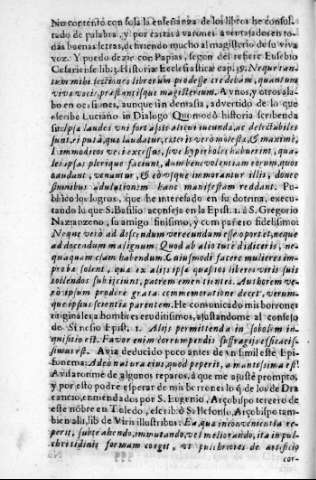 No contento con sola la enseñanza de los libros he consol-
tado de palabra, y por cartas a varones aventajados en to-
das buenas letras, deviendo mucho al magisterio de su viva
voz. Y puedo dezir con Papias, segun del refiere Eusebio
Cesariense lib. 3. Historiæ Ecclesiasticæ cap. Neque enim
ex lectione librorum prodesse credebam, quantum
viva vocis, præstantisque magisterium. A vnos, y otros ala-
bo en ocasiones, aunque sin demasia, advertido de lo que
escribe Luciano in Dialogo Quomodò historia scribenda
sit: Ipsa laudes vni forsasis alicui iucunda, ac delectabiles
sunt, ei puta, qui laudatur, cæteris verò molesta, & maximè,
si immodicos excessus, sive hyperboles habuerint, qua-
les ipsas plerique faciunt, dum benevolentiam eorum, quos
laudant, venantur, & eò vsque immorantur illis, donec
omnibus adulationem hanc manifestam reddant. Pu-
blico los logros, que he interesado en su dotrina, execu-
tando lo que S. Basilio aconseja en la Epist. 1. à S. Gregorio
Nazianzeno, su amigo finisimo, y compañero fidelisimo:
Neque verò ad descendum verecundum esse oportet, neque
ad docendum malignum: Quod ab alio tute didiceris, ne-
quaquam clam habendum. Cuiusmodi facere mulieres im-
probæ solent, quæ ex aliis ipsa quæsitos liberos viris suis
tollendos subijciunt, patrem ementientes. Authorem ve-
rò ipsum prodere grata commemoratione decet, verum-
que ipsius scientiæ parentem. He comunicado mis borrones
originales a hombres eruditisimos, ajustandome al consejo
de Sinesio Epist. 1. Alijs permittenda in sobolem in-
quisitio est. Favor enim corrumpendis suffragijs efficacis-
simus est. Avia deducido poco antes de vn simil este Epi-
fonema: Adeò natura eius, quod peperit, amantissima est.
Avisaronme de algunos reparos, à que me ajustè prompto,
y por esto podrè esperar de mis borrones lo que de los de Dra-
cancio, enmendados por S. Eugenio, Arçobispo tercero de
este nombre en Toledo, escribò S. Ilefonso, Arçobispo tam-
bien alli, lib de Viris illustribus: Ea quæ inconvenientia re-
perit, subtrahendo, immutando, vel meliorando, ita in pul-
chritudinis formam coegit, vt pulchriores de artificio
cor-